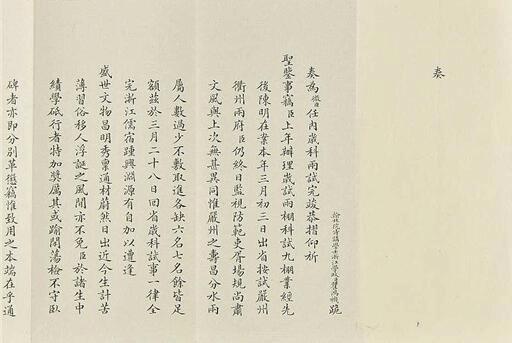 奏
翰林院侍講學士浙江學政臣瞿鴻禨跪
奏為微臣任內歲科兩試完竣恭摺仰祈
聖鑒事竊臣上年辦理歲試兩棚科試九棚業經先
後陳明在案本年三月初三日出省按試嚴州
衢州兩府臣仍終日監視防範吏胥場規尚肅
文風與上次無甚異同惟嚴州之壽昌分水兩
屬人數過少不敷取進各缺六名七名餘皆足
額茲於三月二十八日回省歲科試事一律全
完浙江儒宿踵興淵源有自加以遭逢
盛世文物昌明秀稟通材蔚然日出近今生計苦
薄習俗移人浮誕之風間亦不免臣於諸生中
績學砥行者特加獎厲其或踰閑蕩檢不守臥
碑者亦即分別革儆竊惟致用之本端在乎通